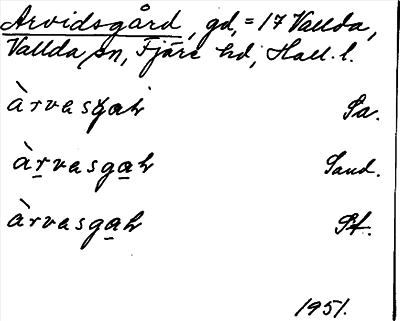 Arvidsgård, gd, = 17 Vallda,
Vallda sn, Fjäre hd, Hall. l.
àrvasgah Sa.
àrvasgah Sand.
àrvasgah St.
1951.